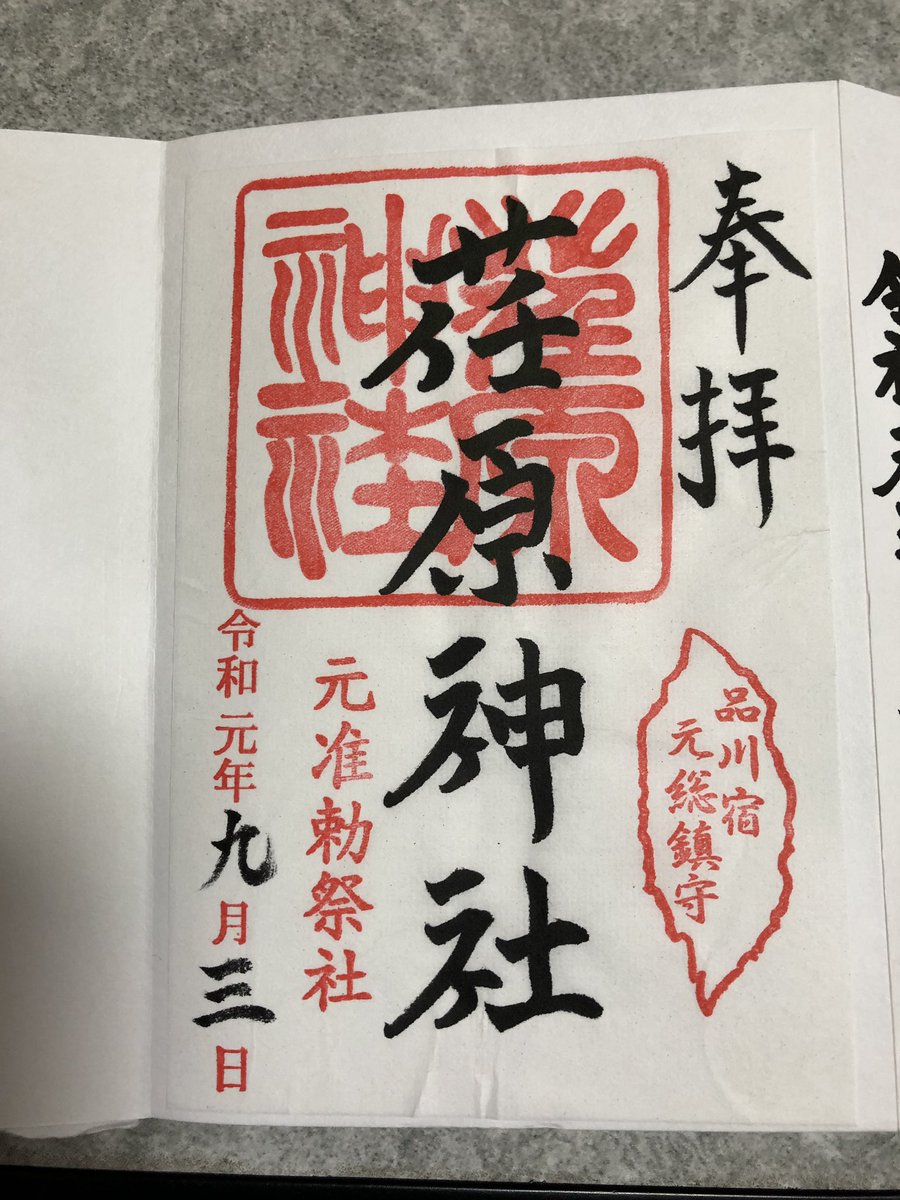 奉拝
品川宿
元総鎮守
荏原
神社
荏原神社
元准勅祭社
令和元年九月三日